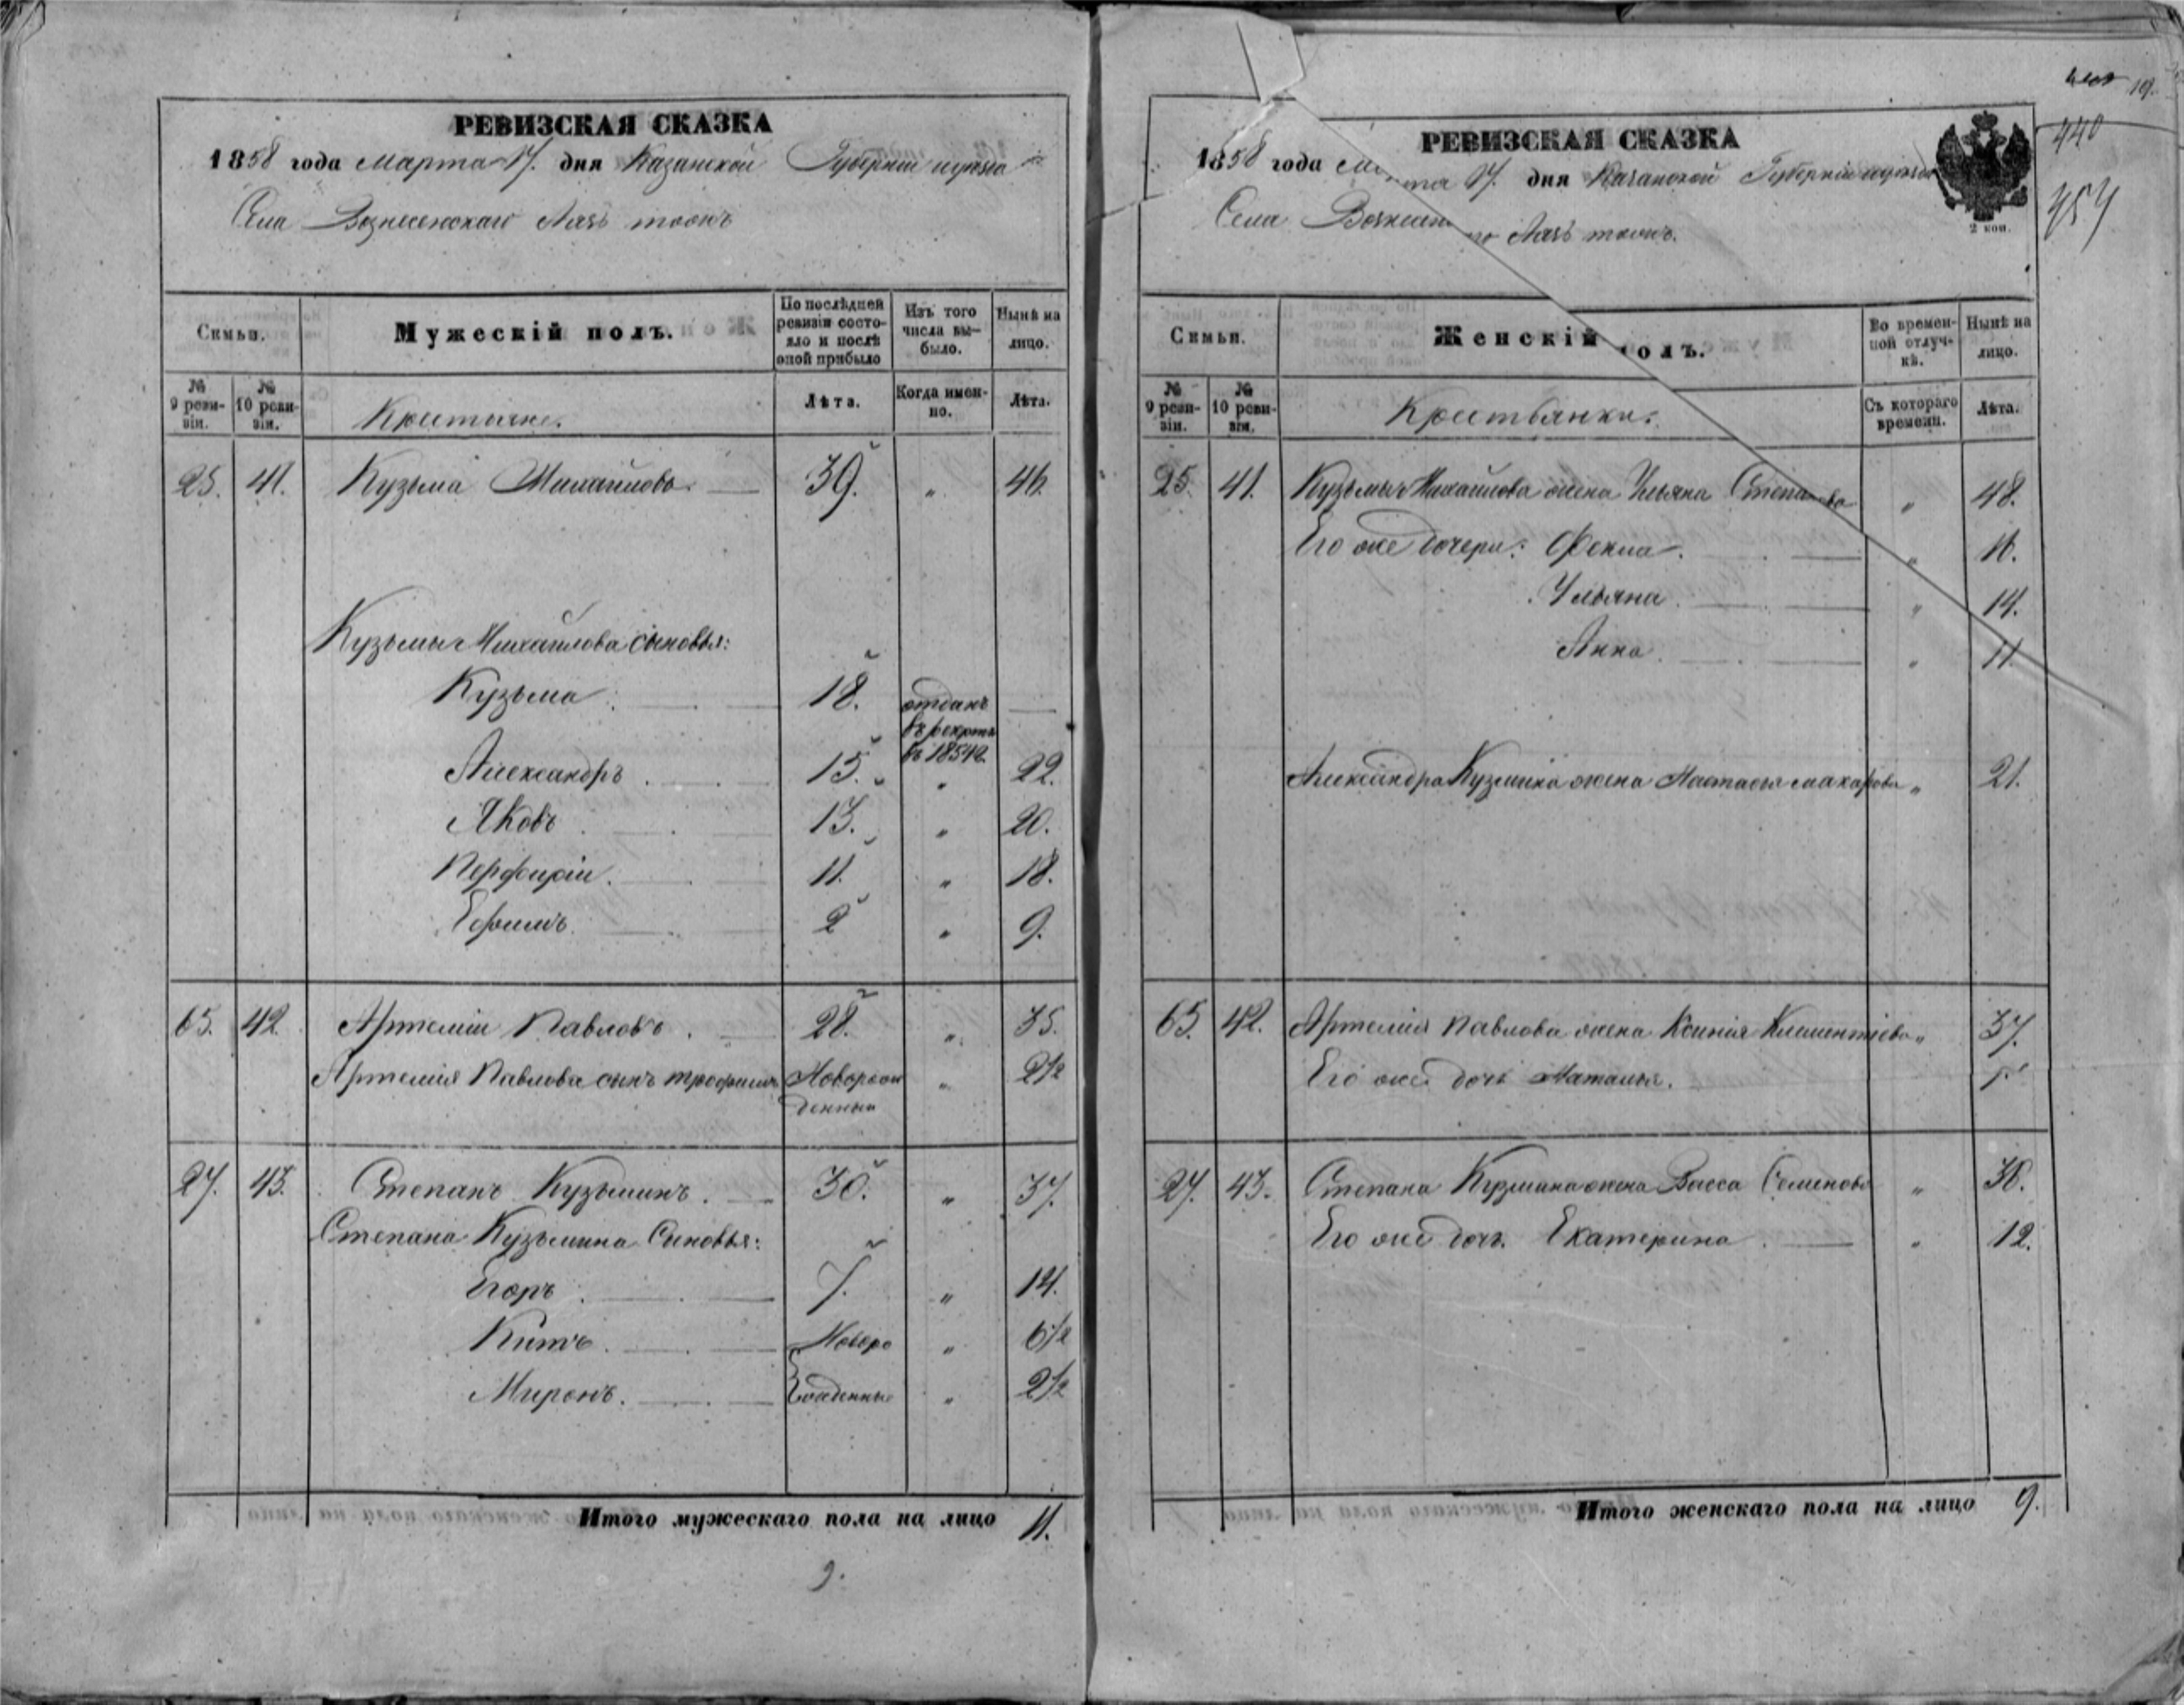 РЕВИЗСКАЯ СКАЗКА
1858 года Марта 17. дня Казанской Губернии уѣзда
Села Вознесенскаго тожъ
Семьи.
Мужескій полъ.
По послѣдней ревизіи состояло и послѣ оной прибыло
Изъ того числа выбыло.
Нынѣ на лицо.
№ 9 ревизіи.
№ 10 ревизіи.
Крестьяне.
Лѣта.
Когда именно.
Лѣта.
25. 41. Кузьма Михайловъ. 39. " 46.
Кузьмы Михайлова сыновья:
Кузьма 18. отданъ въ рекруты въ 1854 г. —
Александръ 15. " 22.
Яковъ 13. " 20.
Перфирій 11. " 18.
Ефимъ 2 " 9.
65. 42. Артемій Павловъ. 28. " 35.
Артемія Павлова сынъ трофимъ Новорожденный " 2 1/2
27. 43. Степанъ Кузьминъ. 30. " 37.
Степана Кузьмина Сыновья:
Егоръ 7. " 14.
Китъ. Новоро " 6 1/2
Миронъ. жденные " 2 1/2
Итого мужескаго пола на лицо 11.
9.
РЕВИЗСКАЯ СКАЗКА
1858 года Марта 17. дня Казанской Губерніи уѣзда
Села тожъ.
2 коп.
19.
440
457
Семьи.
Женскій полъ.
Во временной отлучкѣ.
Нынѣ на лицо.
№ 9 ревизіи.
№ 10 ревизіи.
Крестьянки.
Съ котораго времени.
Лѣта.
25. 41. Кузьмы Михайлова жена Ульяна Степанова " 48.
Его же дочери: Фекла. " 16.
Ульяна. " 14.
Анна. " 11
Александра Кузмина жена Настасья макарова " 21.
65. 42. Артемія Павлова жена Ксенія Климентіева " 37.
Его же дочь Наталья.
27. 43. Степана Кузмина жена Васса Семенова " 38.
Его же дочь Екатерина. " 12.
Итого женскаго пола на лицо 9.